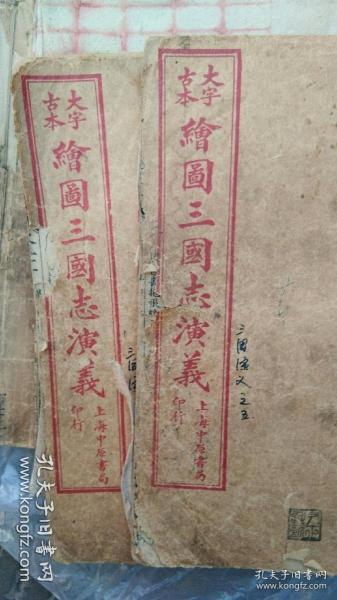 大字
古本
繪圖三國志演義
上海中原書局
印行
大字
古本
繪圖三國志演義
上海中原書局
印行
三国演义之五
孔夫子旧书网
kongfz.com
孔夫子旧书网
kongfz.com